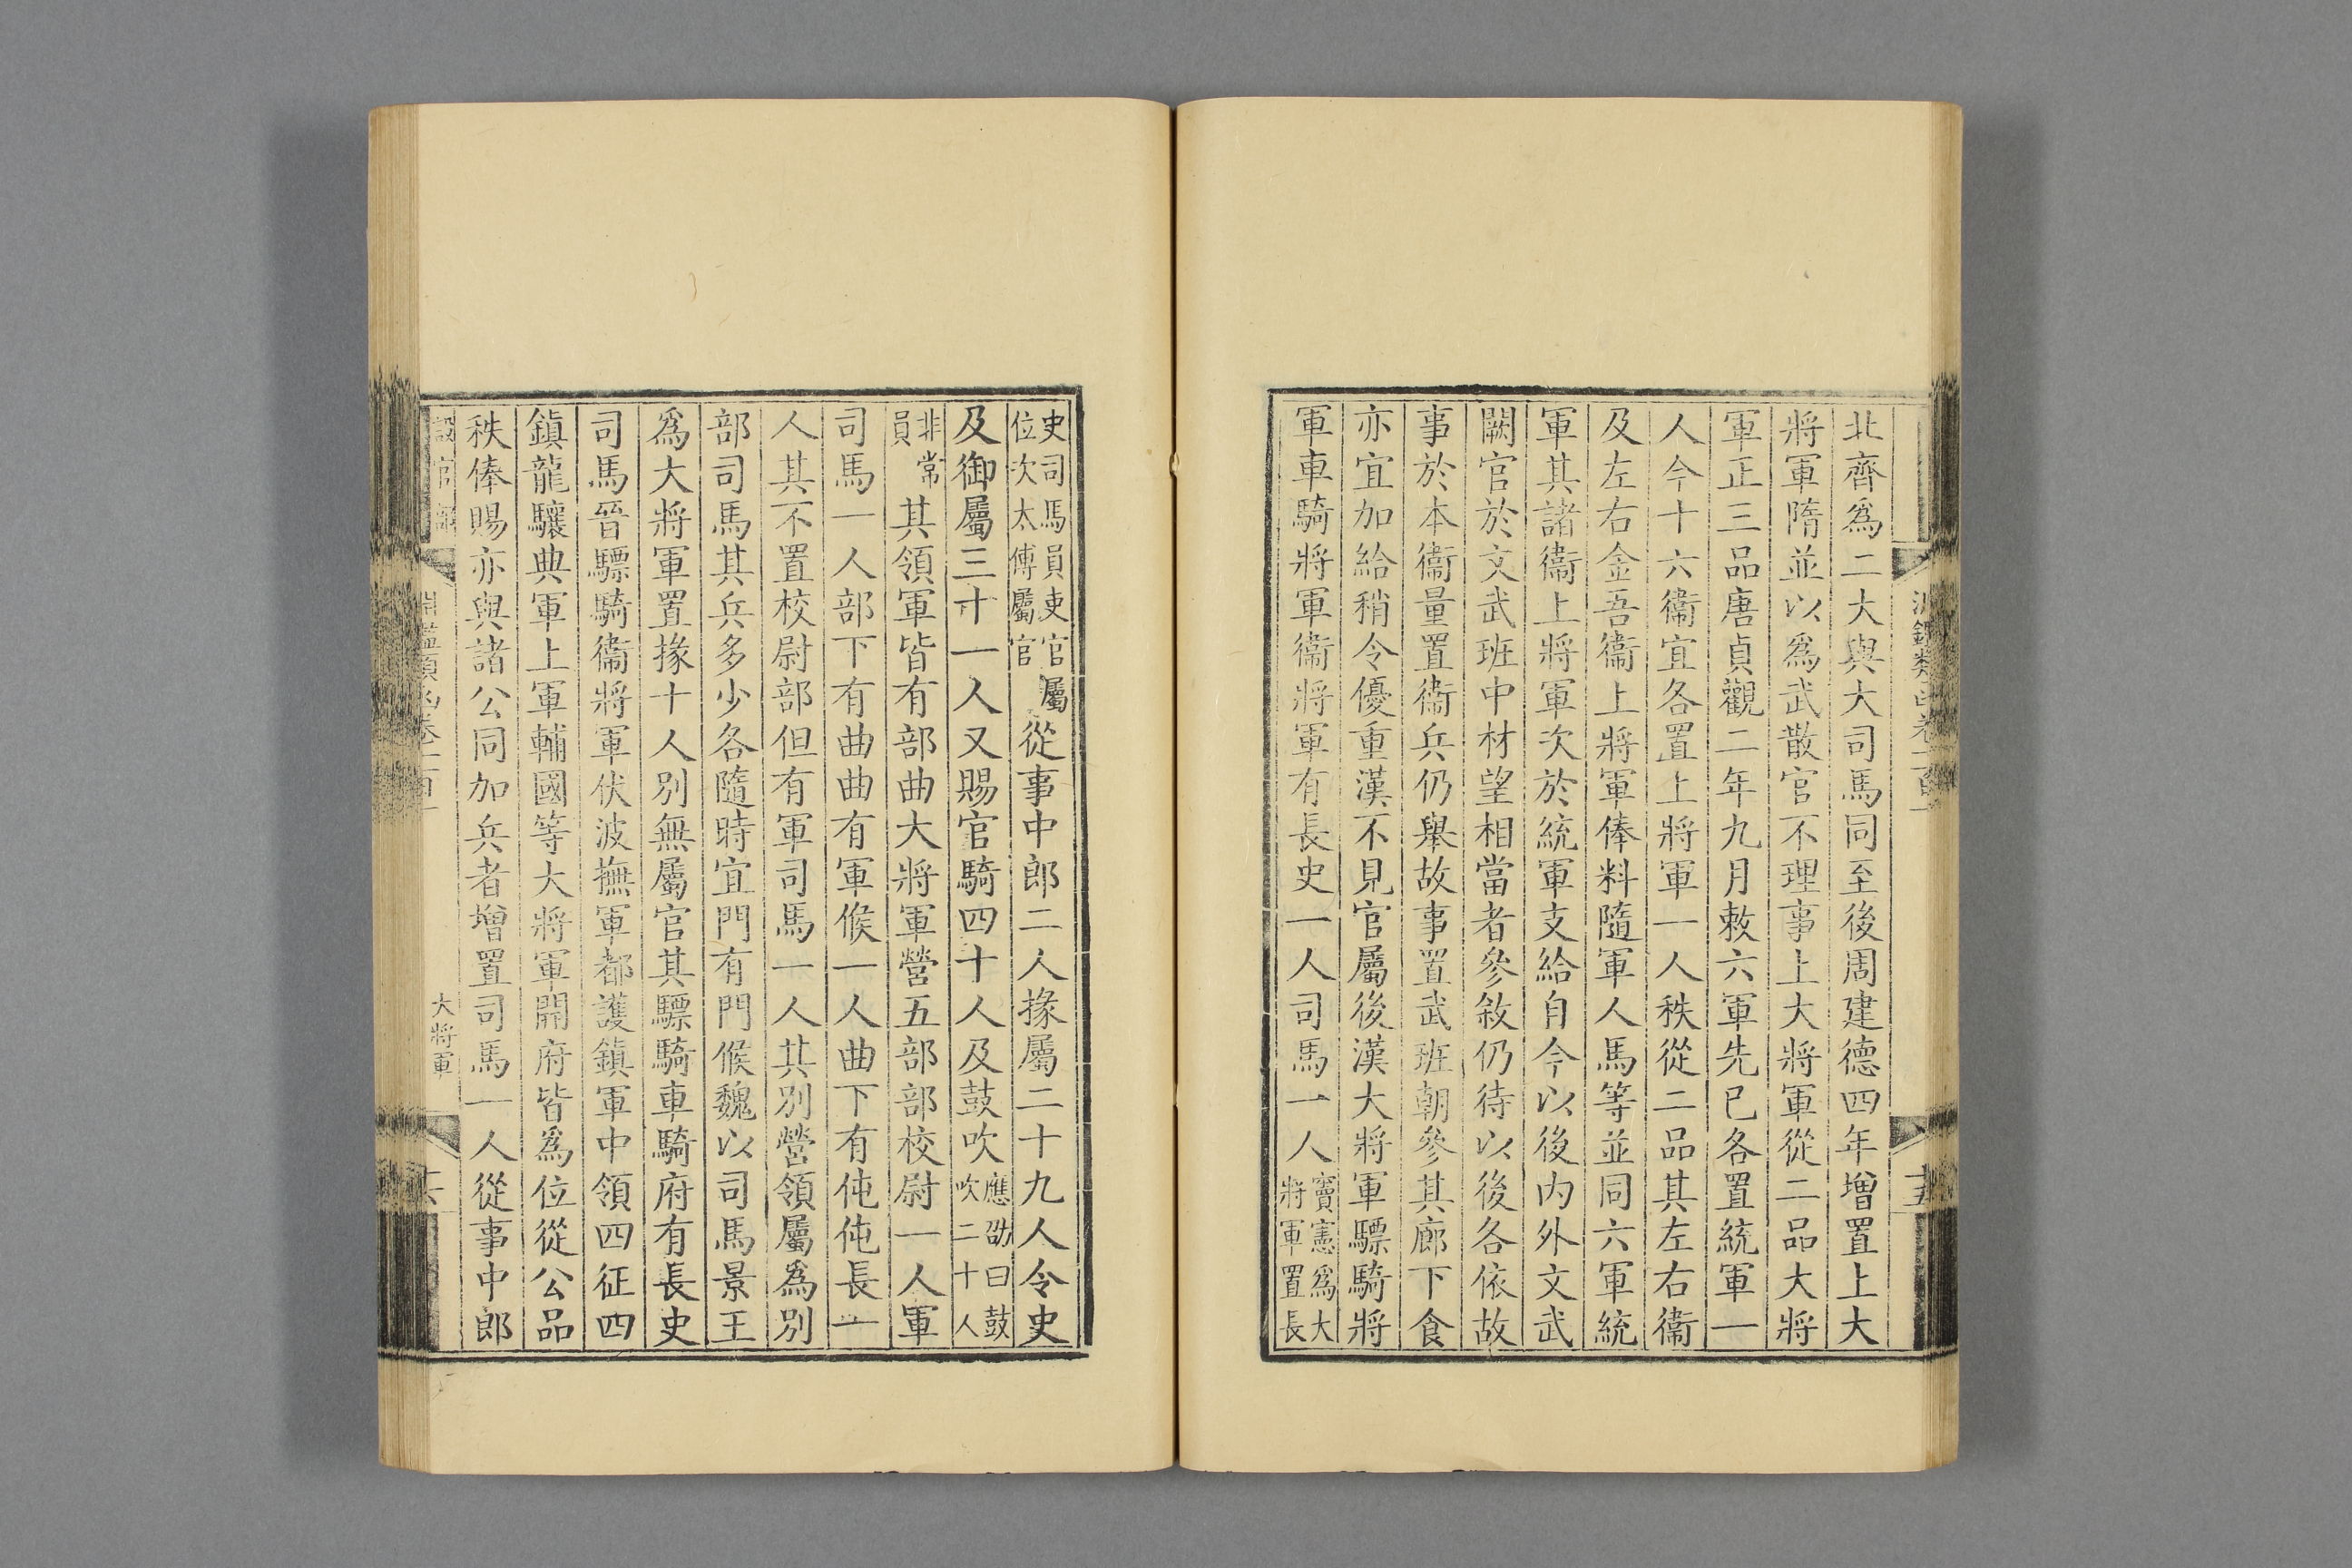 北齊爲二大與大司馬同至後周建德四年增置上大
將軍隋並以爲武散官不理事上大將軍從二品大將
軍正三品唐貞觀二年九月敕六軍先已各置統軍一
人今十六衞宜各置上將軍一人秩從二品其左右衞
及左右金吾衞上將軍俸料隨軍人馬等並同六軍統
軍其諸衞上將軍次於統軍支給自今以後内外文武
闕官於文武班中材望相當者參敘仍待以後各依故
事於本衞量置衞兵仍舉故事置武班朝參其廊下食
亦宜加給稍令優重漢不見官屬後漢大將軍驃騎將
軍車騎將軍衞將軍有長史一人司馬一人竇憲爲大
將軍置長
史司馬員吏官屬
位次太傅屬官從事中郎二人掾屬二十九人令史
及御屬三十一人又賜官騎四十人及鼓吹應劭曰鼓
吹二十人
非常
員其領軍皆有部曲大將軍營五部部校尉一人軍
司馬一人部下有曲曲有軍候一人曲下有伅伅長一
人其不置校尉部但有軍司馬一人其別營領屬爲別
部司馬其兵多少各隨時宜門有門候魏以司馬景王
爲大將軍置掾十人別無屬官其驃騎車騎府有長史
司馬晉驃騎衞將軍伏波撫軍都護鎭軍中領四征四
鎭龍驤典軍上軍輔國等大將軍開府皆爲位從公品
秩俸賜亦與諸公同加兵者增置司馬一人從事中郎
大將軍